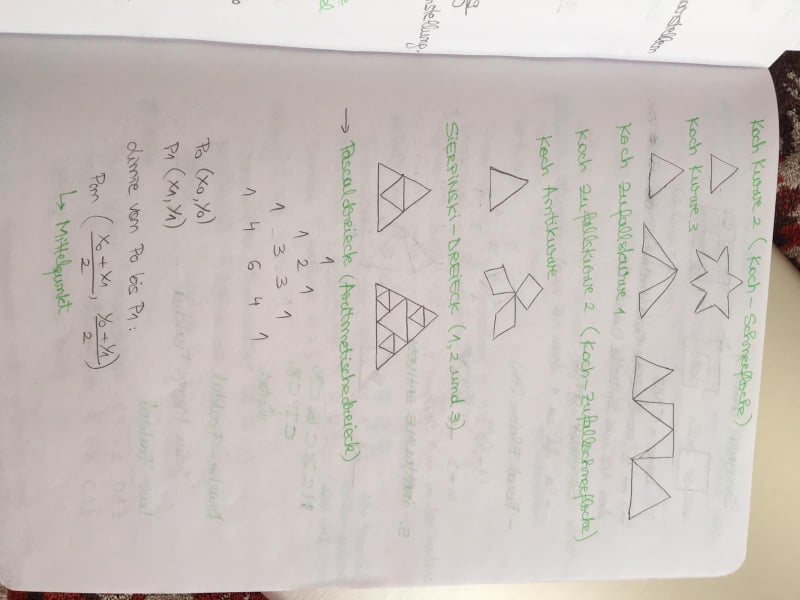 Koch Kurve 2 (Koch-Schneeflocke)
Koch Kurve 3
Koch Zufallskurve 1
Koch Zufallskurve 2 (Koch-Zufallschneeflocke)
Koch Antikurve
SIERPINSKI-DREIECK (1, 2 und 3)
→ Pascaldreieck (Aritmetischedreieck)
1
1 2 1
1 3 3 1
1 4 6 4 1
P0 (x0, y0)
P1 (x1, y1)
Linie von P0 bis P1:
Pm ( (x0 + x1)/2 , (y0 + y1)/2 )
↳ Mittelpunkt
nstellung.